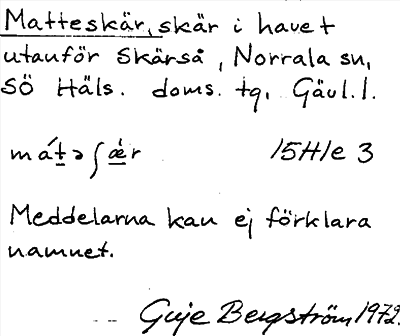 Matteskär, skär i havet
utanför Skärså, Norrala sn,
SÖ Häls. doms. tg, Gävl.l.
mát̲əʃǽ̲r 15H1e 3
Meddelarna kan ej förklara
namnet.
-- Guje Bergström 1972.